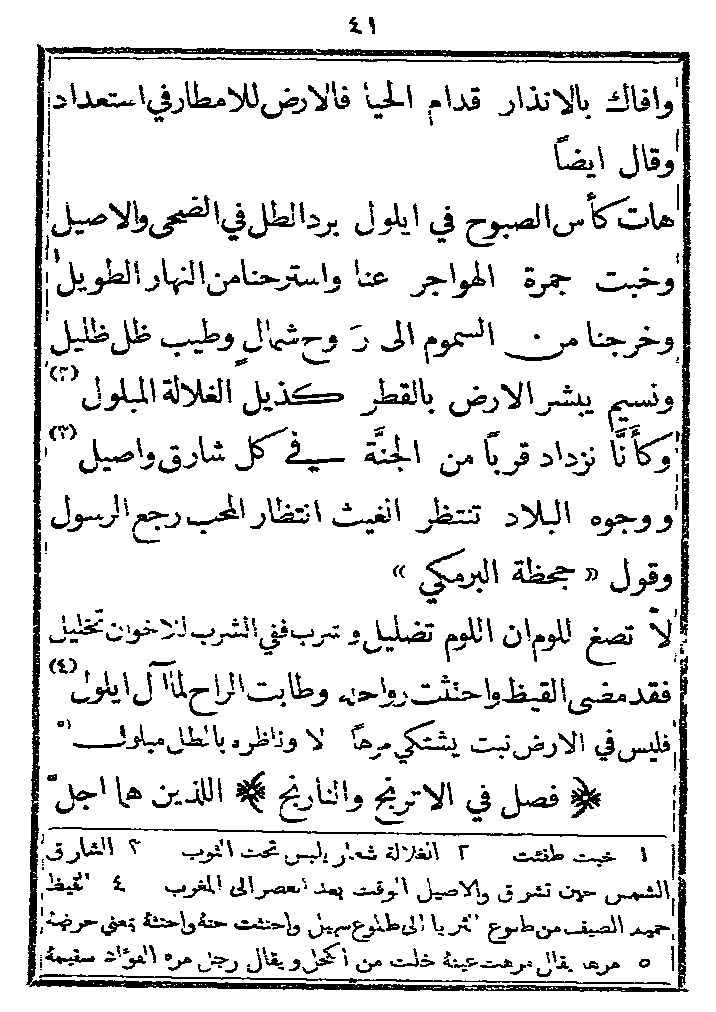 ٤١
وافاك بالانذار قدام الحيا فالارض للامطار في استعداد
وقال ايضاً
هات كأس الصبوح في ايلول برد الظل في الضحى والاصيل
وخبت جمرة الهواجر عنا واسترحنا من النهار الطويل ١
وخرجنا من السموم الى رَوح شمالٍ وطيب ظل ظليل
ونسيم يبشر الارض بالقطر كذيل الغلالة المبلول (٢)
وكأنَّا نزداد قرباً من الجنَّة في كل شارق واصيل (٣)
ووجوه البلاد تنتظر الغيث انتظار المحب رجع الرسول
وقول « جحظة البرمكي »
لا تصغ للوم ان اللوم تضليل واشرب ففي الشرب للاخوان تحليل
فقد مضى القيظ واحتثت رواحله وطابت الراح لما آل ايلول (٤)
فليس في الارض نبت يشتكي مرهاً الا وناظره بالطل مبلول (٥
﴿ فصل في الاترنج والنارنج ﴾ اللذين هما اجل
١ خبت طفئت ٢ الغلالة شعار يلبس تحت الثوب ٣ الشارق
الشمس حين تشرق والاصيل الوقت بعد العصر الى المغرب ٤ القيظ
حميد الصيف من طلوع الثريا الى طلوع سهيل واحتثت حثة واحتثة بمعنى حرضة
٥ مرها يقال مرهت عينة خلت من الكحل ويقال رجل مره الفؤاد سقيمة